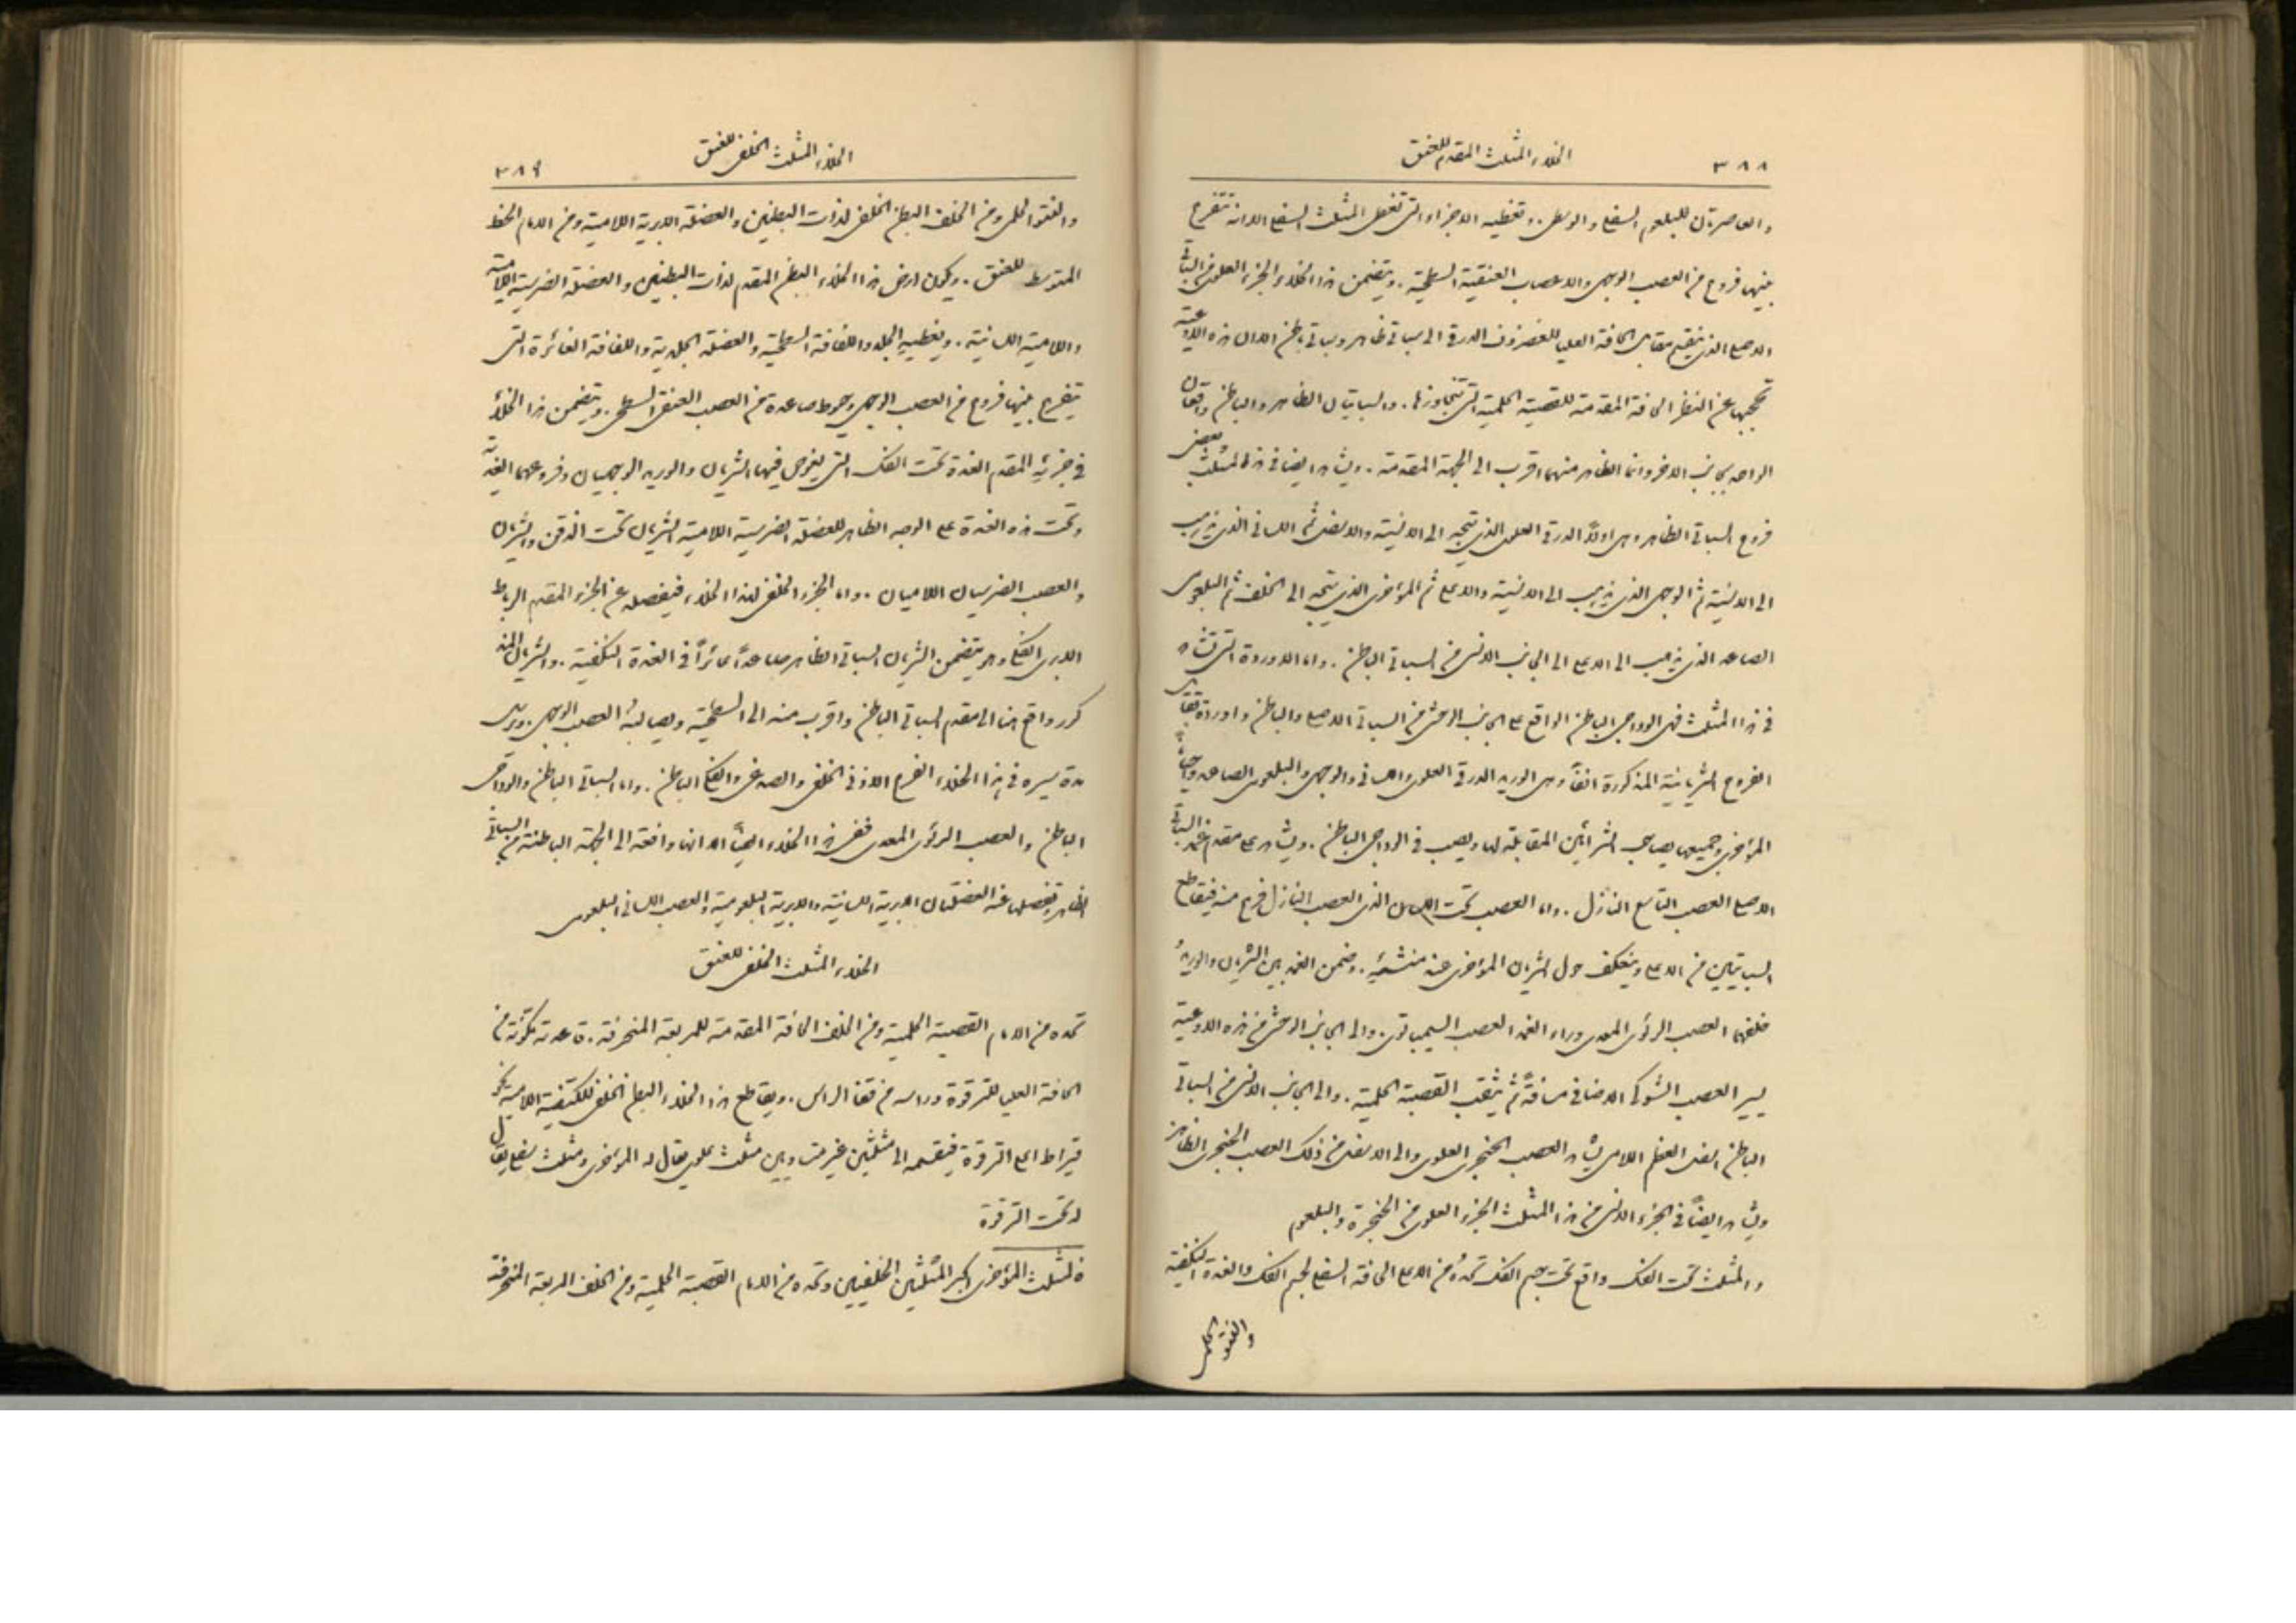 ٣٨٨
الخلاء المثلث المقدم للعنق
والعاصرتان للبلعوم السفلى والوسطى. وتغطيه الاجزاء التى تغطى المثلث السفلى الا انه تتفرع
بينها فروع من العصب الوجهى والاعصاب العنقية السطحية. ويتضمن هذا الخلاء الجزء العلوى من السباتى
الاصلى الذى ينقسم مقابل الحافة العليا للغضروف الدرقى الى سباتى ظاهر وسباتى باطن الا ان هذه الاوعية
تحجبها عن النظر الحافة المقدمة للقصية الحلمية التى تتجاوزها. والسباتيان الظاهر والباطن واقعان
الواحد بجانب الاخر وانما الظاهر منهما اقرب الى الجهة المقدمة. ويشاهد ايضا فى هذا المثلث بعض
فروع السباتى الظاهر وهى اولاً الدرقى العلوى الذى يتجه الى الانسية والاسفل ثم اللسانى الذى يذهب
الى الانسية ثم الوجهى الذى يذهب الى الانسية والاعلى ثم المؤخرى الذى يتجه الى الخلف ثم البلعومى
الصاعد الذى يذهب الى الاعلى الى الجانب الانسى من السباتى الباطن. واما الاوردة التى تشاهد
فى هذا المثلث فهى الوداجى الباطن الواقع على الجانب الوحشى من السباتى الاصلى والباطن واوردة تقابل
الفروع الشريانية المذكورة انفاً وهى الوريد الدرقى العلوى واللسانى والوجهى والبلعومى الصاعد واحياناً
المؤخرى وجميعها يصاحب الشرائين المقابلة لها ويصب فى الوداجى الباطن. ويشاهد على مقدم غمد السباتى
الاصلى العصب التاسع النازل. واما العصب تحت اللسان الذى العصب النازل فرع منه فيقاطع
السباتيين من الاعلى وينعكف حول الشريان المؤخرى عند منشئه. وضمن الغمد بين الشريان والوريد
خلفهما العصب الرئوى المعدى وراء الغمد العصب السيمباتوى. والى الجانب الوحشى من هذه الاوعية
يسير العصب الشوكى الاضافى مسافةً ثم يثقب القصية الحلمية. والى الجانب الانسى من السباتى
الباطن اسفل العظم اللامى يشاهد العصب الحنجرى العلوى والى الاسفل من ذلك العصب الحنجرى الظاهر
ويشاهد ايضاً فى الجزء الانسى من هذا المثلث الجزء العلوى من الحنجرة والبلعوم
والمثلث تحت الفك واقع تحت جسم الفك تحدهُ من الاعلى الحافة السفلى لجسم الفك والغدة النكفية
والنتو الحلمى
الخلاء المثلث الخلفى للعنق
٣٨٩
والنتو الحلمى ومن الخلف البطن الخلفى لذات البطنين والعضلة الابرية اللامية ومن الامام الخط
المتوسط للعنق. ويكون ارض هذا الخلاء البطن المقدم لذات البطنين والعضلة الضرسية اللامية
واللامية اللسانية. ويغطيهِ الجلد واللفافة السطحية والعضلة الجلدية واللفافة الغائرة التى
يتفرع بينها فروع من العصب الوجهى وخيوط صاعدة من العصب العنقى السطحى. ويتضمن هذا الخلاء
فى جزئهِ المقدم الغدة تحت الفك التى يغوص فيها الشريان والوريد الوجهيان وفروعهما الغدية
وتحت هذه الغدة على الوجه الظاهر للعضلة الضرسية اللامية الشريان تحت الذقن والشريان
والعصب الضرسيان اللاميان. واما الجزء الخلفى لهذا الخلاء فيفصله عن الجزء المقدم الرباط
الابرى الفكى وهو يتضمن الشريان السباتى الظاهر صاعداً غائراً فى الغدة النكفية. والشريان المذ
كور واقع هنا الى مقدم السباتى الباطن واقرب منه الى السطحية ويصالبهُ العصب الوجهى. ويرسل
مدة سيره فى هذا الخلاء الفرع الاذنى الخلفى والصدغى والفكى الباطن. واما السباتى الباطن والوداجى
الباطن والعصب الرئوى المعدى ففى هذا الخلاء ايضاً الا انها واقعة الى الجهة الباطنة من السباتى
الظاهر تفصلها عنه العضلتان الابرية اللسانية والابرية البلعومية والعصب اللسانى البلعومى
الخلاء المثلث الخلفى للعنق
تحده من الامام القصية الحلمية ومن الخلف الحافة المقدمة للمربعة المنحرفة. قاعدته مكونة من
الحافة العليا للترقوة وراسه من قفا الراس. ويقاطع هذا الخلاء البطن الخلفى للكتفية اللامية نحو
قيراط اعلى الترقوة فينقسم الى مثلثين غير متساويين مثلث علوى يقال له المؤخرى ومثلث سفلى يقال
له تحت الترقوة
فالمثلث المؤخرى اكبر المثلثين الخلفيين وتحده من الامام القصية الحلمية ومن الخلف المربعة المنحرفة